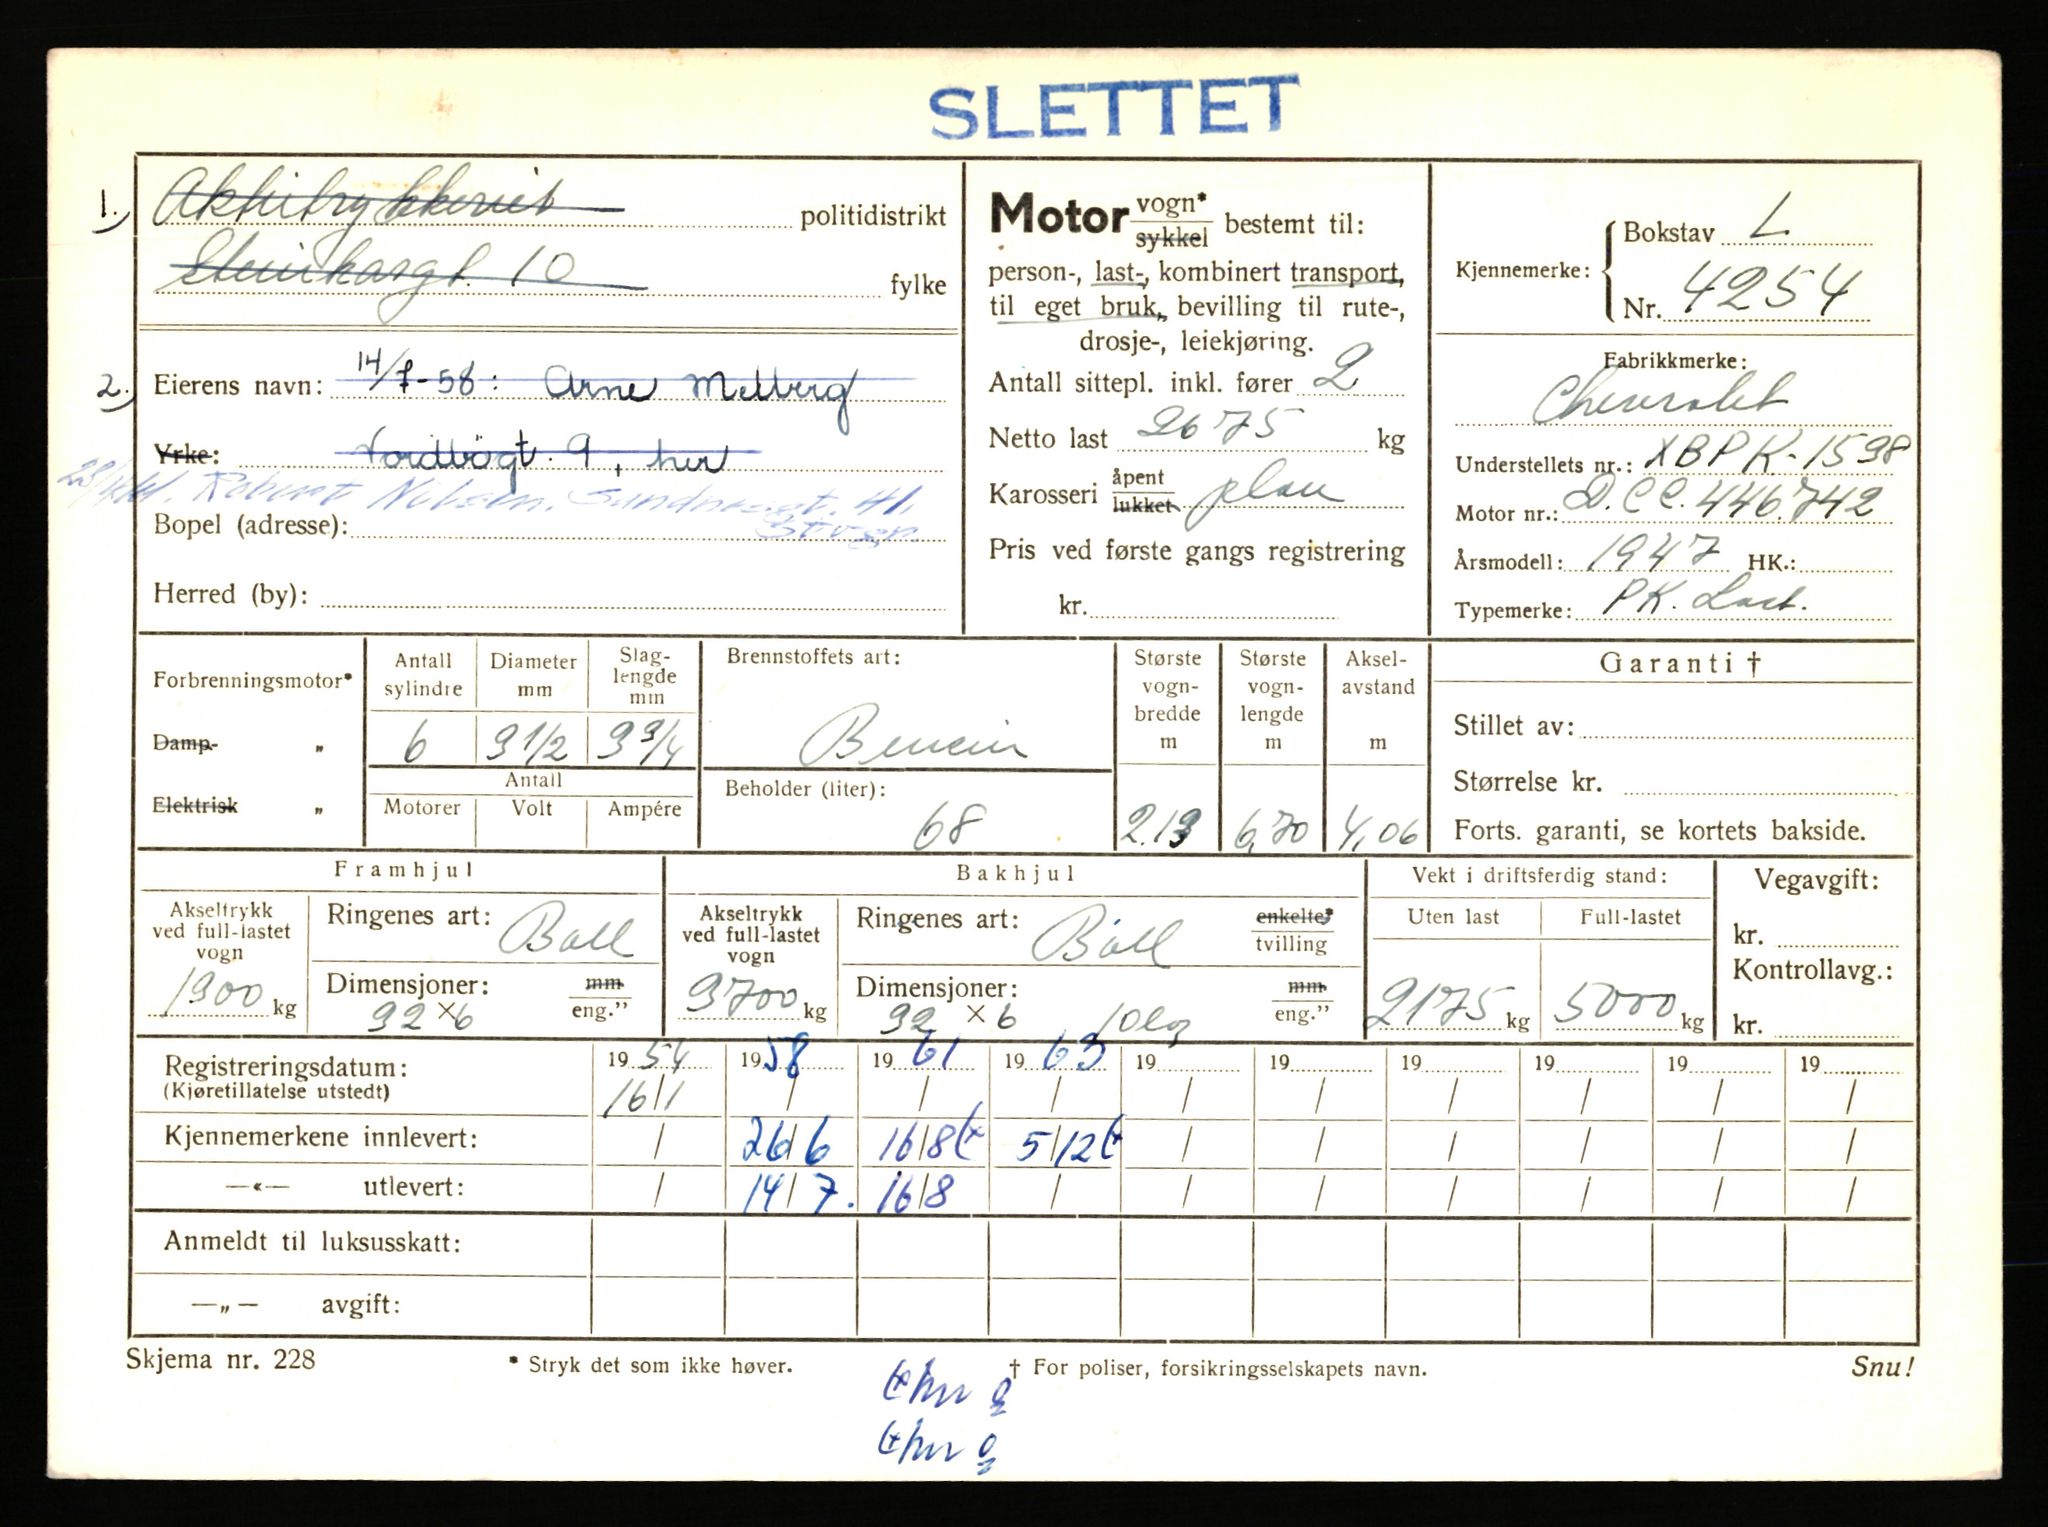 SLETTET
1.) Aktietrykkeriet politidistrikt
Steinkargt. 10 fylke
2.) Eierens navn: 14/7-58: Arne Melberg
Yrke: Nordbøgt. 9, her
Robert Nilsen. 41.
Bopel (adresse): Stvgr.
Herred (by):
Motor vogn* sykkel bestemt til:
person-, last-, kombinert transport,
til eget bruk, bevilling til rute-,
drosje-, leiekjøring.
Antall sittepl. inkl. fører 2
Netto last 2675 kg
Karosseri åpent lukket plan
Pris ved første gangs registrering
kr.
Kjennemerke: Bokstav L
Nr. 4254
Fabrikkmerke:
Chevrolet
Understellets nr.: XBPK-1598
Motor nr.: D.CC.446742
Årsmodell: 1947 HK.:
Typemerke: PK. Last.
Forbrenningsmotor*
Damp- „
Elektrisk „
Antall sylindre 6
Diameter mm 3 1/2
Slag-lengde mm 3 3/4
Antall
Motorer Volt Ampére
Brennstoffets art:
Bensin
Beholder (liter):
68
Største vogn-bredde m 2.13
Største vogn-lengde m 6,70
Aksel-avstand m 4,06
Garanti †
Stillet av:
Størrelse kr.
Forts. garanti, se kortets bakside.
Framhjul
Akseltrykk ved full-lastet vogn
1300 kg
Ringenes art: Ball
Dimensjoner: mm eng."
32 x 6
Bakhjul
Akseltrykk ved full-lastet vogn
3700 kg
Ringenes art: Ball enkelte* tvilling
Dimensjoner: mm eng."
32 x 6 10lag
Vekt i driftsferdig stand:
Uten last Full-lastet
2175 kg 5000 kg
Vegavgift:
kr.
Kontrollavg.:
kr.
Registreringsdatum: 1954 1958 1961 1963 19 19 19 19 19 19
(Kjøretillatelse utstedt) 16/1 / / / / / / / / /
Kjennemerkene innlevert: / 26/6 16/8 (* 5/12 (* / / / / / /
—«— utlevert: / 14/7. 16/8 / / / / / / /
Anmeldt til luksusskatt:
—„— avgift:
Skjema nr. 228 * Stryk det som ikke høver. † For poliser, forsikringsselskapets navn. Snu!